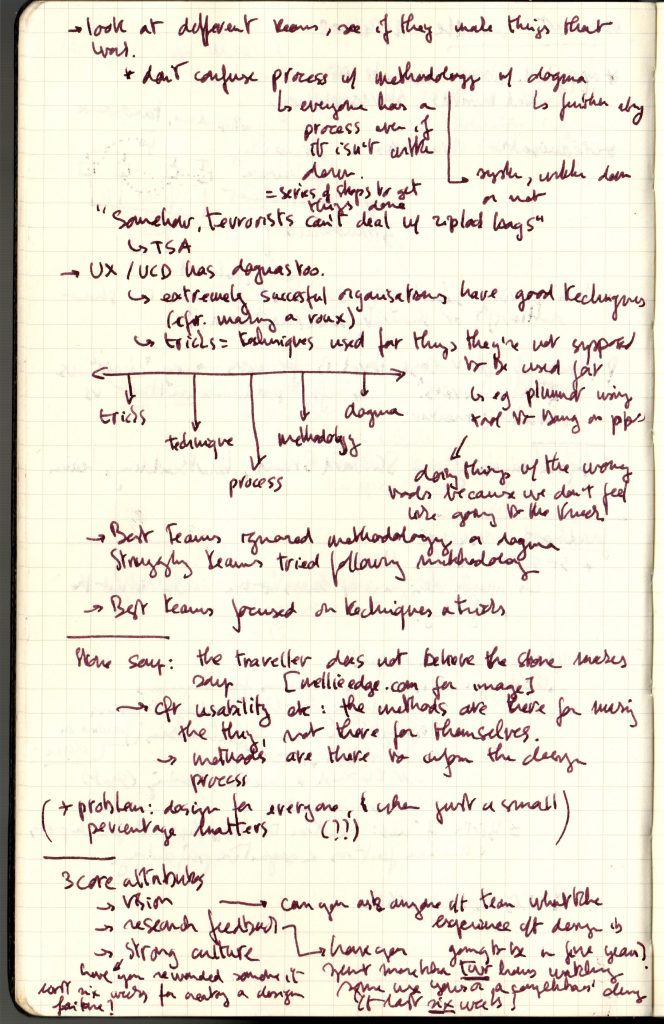 → look at different teams, see if they make things that
work.
* don't confuse process w/ methodology w/ dogma
↳ everyone has a
process even if
it isn't written
down.
= series of steps to get
things done
↳ further away
↳ system, written down
or not
"Somehow, terrorists can't deal w/ ziploc bags"
↳ TSA
→ UX / UCD has dogmas too.
↳ extremely succesful organisations have good techniques
(cfr. making a roux)
↳ tricks = techniques used for things they're not supposed
to be used for
↳ eg plumber using
tool to bang on pipe
tricks
technique
process
methodology
dogma
doing things w/ the wrong
tools because we don't feel
like going to the truck!
→ Best Teams ignored methodology or dogma
Struggling teams tried following methodology
→ Best teams focused on techniques & tricks
Stone soup: the traveller does not believe the stone makes
soup [nellieedge.com for image]
→ cfr usability etc: the methods are there for making
the thing, not there for themselves.
→ methods are there to inform the design
process
(+ problem: design for everyone, & when just a small
percentage matters (??))
3 core attributes
→ vision → can you ask anyone oft team what the
experience oft design is
going to be in five years?
→ research feedback → have you
spent more than two hours watching
some use yours or a competitors' design
it last six weeks?
→ strong culture
have you rewarded someone it
last six weeks for creating a design
failure!